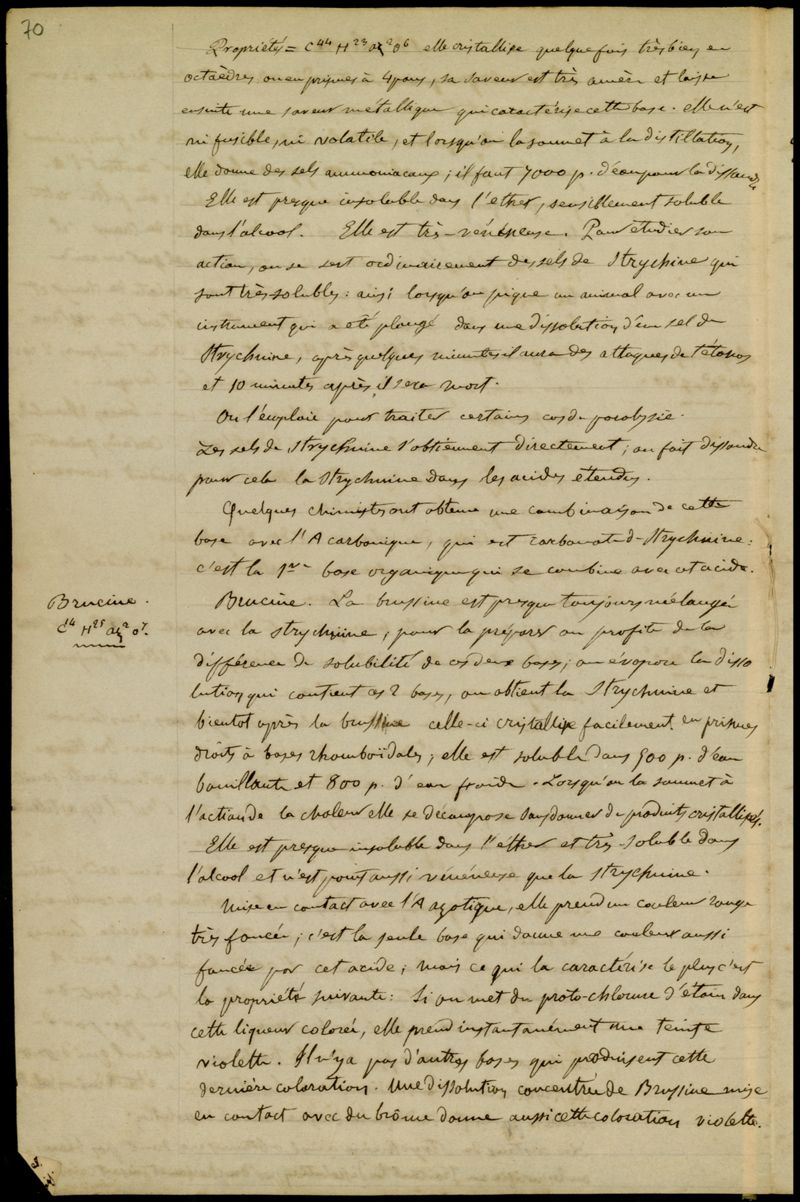 70
Propriétés = C⁴⁴ H²³ az² O⁶ elle cristallise quelquefois très bien en
octaèdres ou en prismes à 4 pans, sa saveur est très amère et laisse
ensuite une saveur métallique qui caractérise cette base. elle n'est
ni fusible, ni volatile, et lorsqu'on la soumet à la distillation,
elle donne des sels ammoniacaux; il faut 7000 p. d'eau pour la dissoudre
Elle est presque insoluble dans l'ether, sensiblement soluble
dans l'alcool. Elle est très-vénéneuse. Pour étudier son
action, on se sert ordinairement des sels de Strychine qui
sont très solubles: ainsi lorsqu'on pique un animal avec un
instrument qui a été plongé dans une dissolution d'un sel de
Strychnine, après quelques minutes il aura des attaques de tétanos
et 10 minutes après il sera mort.
On l'emploie pour traiter certains cas de paralysie.
Les sels de Strychnine s'obtiennent directement; on fait dissoudre
pour cela la Strychnine dans les acides étendus.
Quelques chimistes ont obtenu une combinaison de cette
base avec l'A carbonique, qui est carbonate d-Strychnine:
c'est la 1ère base organique qui se combine avec cet acide.
Brucine.
C⁴⁴ H²⁵ az² O⁷.
Brucine. La brussine est presque toujours mélangée
avec la strychnine, pour la préparer on profite de la
différence de solubilité de ces deux bases; on évapore la disso
lution qui contient ces 2 bases, on obtient la Strychnine et
bientot après la brussine celle-ci cristallise facilement en prismes
droits à bases rhomboïdales; elle est soluble dans 500 p. d'eau
bouillante et 800 p. d'eau froide. Lorsqu'on la soumet à
l'action de la chaleur elle se décompose sans donner de produits cristallisés.
Elle est presque insoluble dans l'ether et très-soluble dans
l'alcool et n'est point aussi vénéneuse que la strychnine.
Mise en contact avec l'A azotique, elle prend une couleur rouge
très foncée; c'est la seule base qui donne une couleur aussi
foncée par cet acide; mais ce qui la caractérise le plus c'est
la propriété suivante: Si on met du proto-chlorure d'étain dans
cette liqueur colorée, elle prend instantanément une teinte
violette. Il n'y a pas d'autres bases qui produisent cette
dernière coloration. Une dissolution concentrée de Brussine mise
en contact avec du brôme donne aussi cette coloration violette.